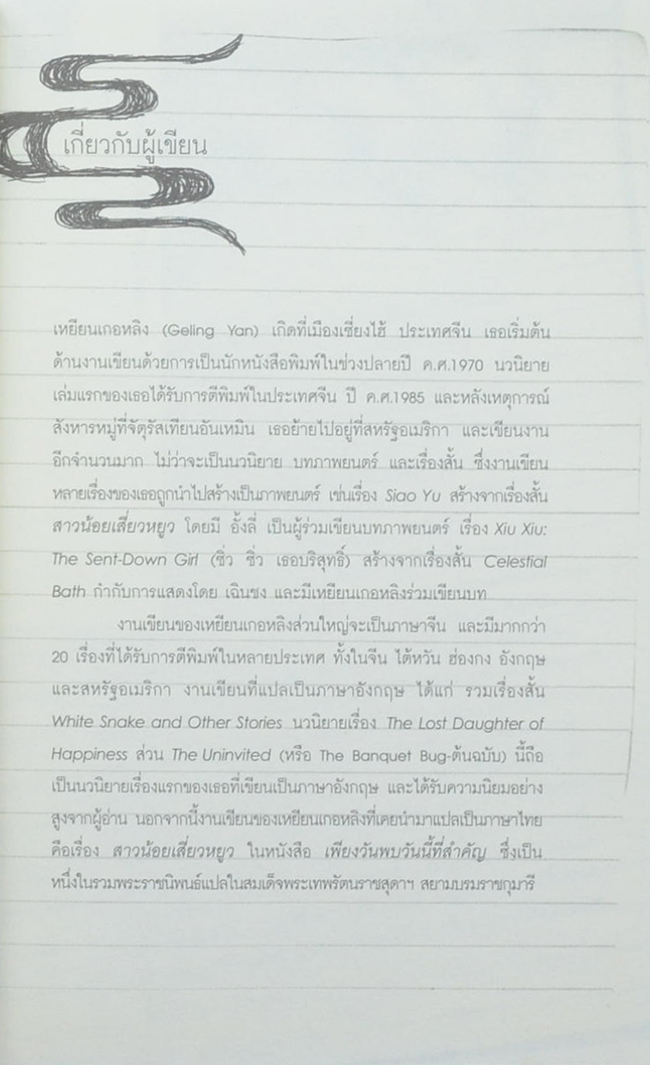 เกี่ยวกับผู้เขียน
เหยียนเกอหลิง (Geling Yan) เกิดที่เมืองเซี่ยงไฮ้ ประเทศจีน เธอเริ่มต้น
ด้านงานเขียนด้วยการเป็นนักหนังสือพิมพ์ในช่วงปลายปี ค.ศ.1970 นวนิยาย
เล่มแรกของเธอได้รับการตีพิมพ์ในประเทศจีน ปี ค.ศ.1985 และหลังเหตุการณ์
สังหารหมู่ที่จัตุรัสเทียนอันเหมิน เธอย้ายไปอยู่ที่สหรัฐอเมริกา และเขียนงาน
อีกจำนวนมาก ไม่ว่าจะเป็นนวนิยาย บทภาพยนตร์ และเรื่องสั้น ซึ่งงานเขียน
หลายเรื่องของเธอถูกนำไปสร้างเป็นภาพยนตร์ เช่นเรื่อง Siao Yu สร้างจากเรื่องสั้น
สาวน้อยเสี่ยวหยูว โดยมี อั้งลี่ เป็นผู้ร่วมเขียนบทภาพยนตร์ เรื่อง Xiu Xiu:
The Sent-Down Girl (ซิ่ว ซิ่ว เธอบริสุทธิ์) สร้างจากเรื่องสั้น Celestial
Bath กำกับการแสดงโดย เฉินชง และมีเหยียนเกอหลิงร่วมเขียนบท
งานเขียนของเหยียนเกอหลิงส่วนใหญ่จะเป็นภาษาจีน และมีมากกว่า
20 เรื่องที่ได้รับการตีพิมพ์ในหลายประเทศ ทั้งในจีน ไต้หวัน ฮ่องกง อังกฤษ
และสหรัฐอเมริกา งานเขียนที่แปลเป็นภาษาอังกฤษ ได้แก่ รวมเรื่องสั้น
White Snake and Other Stories นวนิยายเรื่อง The Lost Daughter of
Happiness ส่วน The Uninvited (หรือ The Banquet Bug-ต้นฉบับ) นี้ถือ
เป็นนวนิยายเรื่องแรกของเธอที่เขียนเป็นภาษาอังกฤษ และได้รับความนิยมอย่าง
สูงจากผู้อ่าน นอกจากนี้งานเขียนของเหยียนเกอหลิงที่เคยนำมาแปลเป็นภาษาไทย
คือเรื่อง สาวน้อยเสี่ยวหยูว ในหนังสือ เพียงวันพบวันนี้ที่สำคัญ ซึ่งเป็น
หนึ่งในรวมพระราชนิพนธ์แปลในสมเด็จพระเทพรัตนราชสุดาฯ สยามบรมราชกุมารี